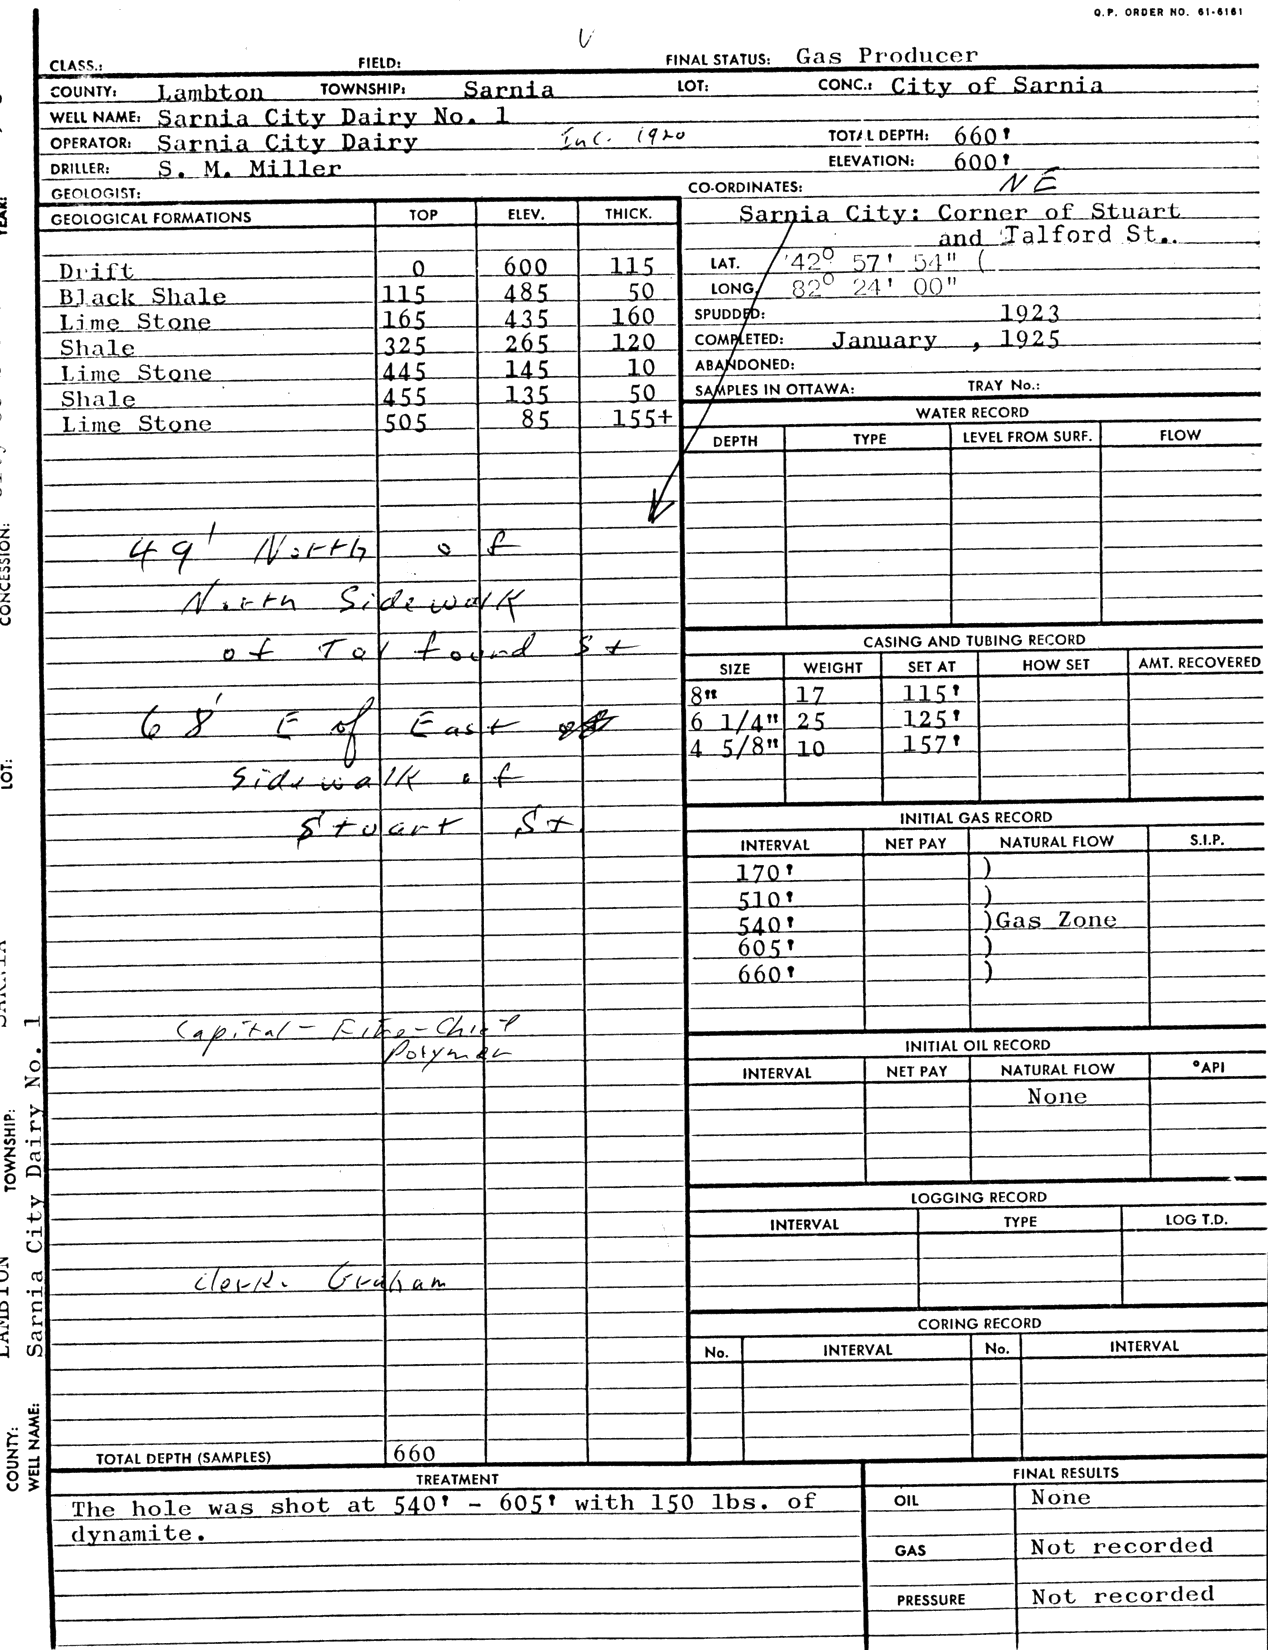 O.P. ORDER NO. 61-6161
CLASS.: FIELD: V FINAL STATUS: Gas Producer
COUNTY: Lambton TOWNSHIP: Sarnia LOT: CONC.: City of Sarnia
WELL NAME: Sarnia City Dairy No. 1
OPERATOR: Sarnia City Dairy Inc. 1920 TOTAL DEPTH: 660'
DRILLER: S. M. Miller ELEVATION: 600'
GEOLOGIST: CO-ORDINATES: NE
GEOLOGICAL FORMATIONS TOP ELEV. THICK.
Drift 0 600 115
Black Shale 115 485 50
Lime Stone 165 435 160
Shale 325 265 120
Lime Stone 445 145 10
Shale 455 135 50
Lime Stone 505 85 155+
49' North of
North Sidewalk
of Talfourd St
68' E of East
sidewalk of
Stuart St
Capital - - Chief
Polymer
Clerk. Graham
TOTAL DEPTH (SAMPLES) 660
Sarnia City: Corner of Stuart
and Talford St..
LAT. 42° 57' 54" (
LONG. 82° 24' 00"
SPUDDED: 1923
COMPLETED: January , 1925
ABANDONED:
SAMPLES IN OTTAWA: TRAY No.:
WATER RECORD
DEPTH TYPE LEVEL FROM SURF. FLOW
CASING AND TUBING RECORD
SIZE WEIGHT SET AT HOW SET AMT. RECOVERED
8" 17 115'
6 1/4" 25 125'
4 5/8" 10 157'
INITIAL GAS RECORD
INTERVAL NET PAY NATURAL FLOW S.I.P.
170' )
510' )
540' )Gas Zone
605' )
660' )
INITIAL OIL RECORD
INTERVAL NET PAY NATURAL FLOW °API
None
LOGGING RECORD
INTERVAL TYPE LOG T.D.
CORING RECORD
No. INTERVAL No. INTERVAL
TREATMENT
The hole was shot at 540' - 605' with 150 lbs. of
dynamite.
FINAL RESULTS
OIL None
GAS Not recorded
PRESSURE Not recorded
COUNTY: LAMBTON TOWNSHIP: SARNIA LOT: CONCESSION: YEAR:
WELL NAME: Sarnia City Dairy No. 1